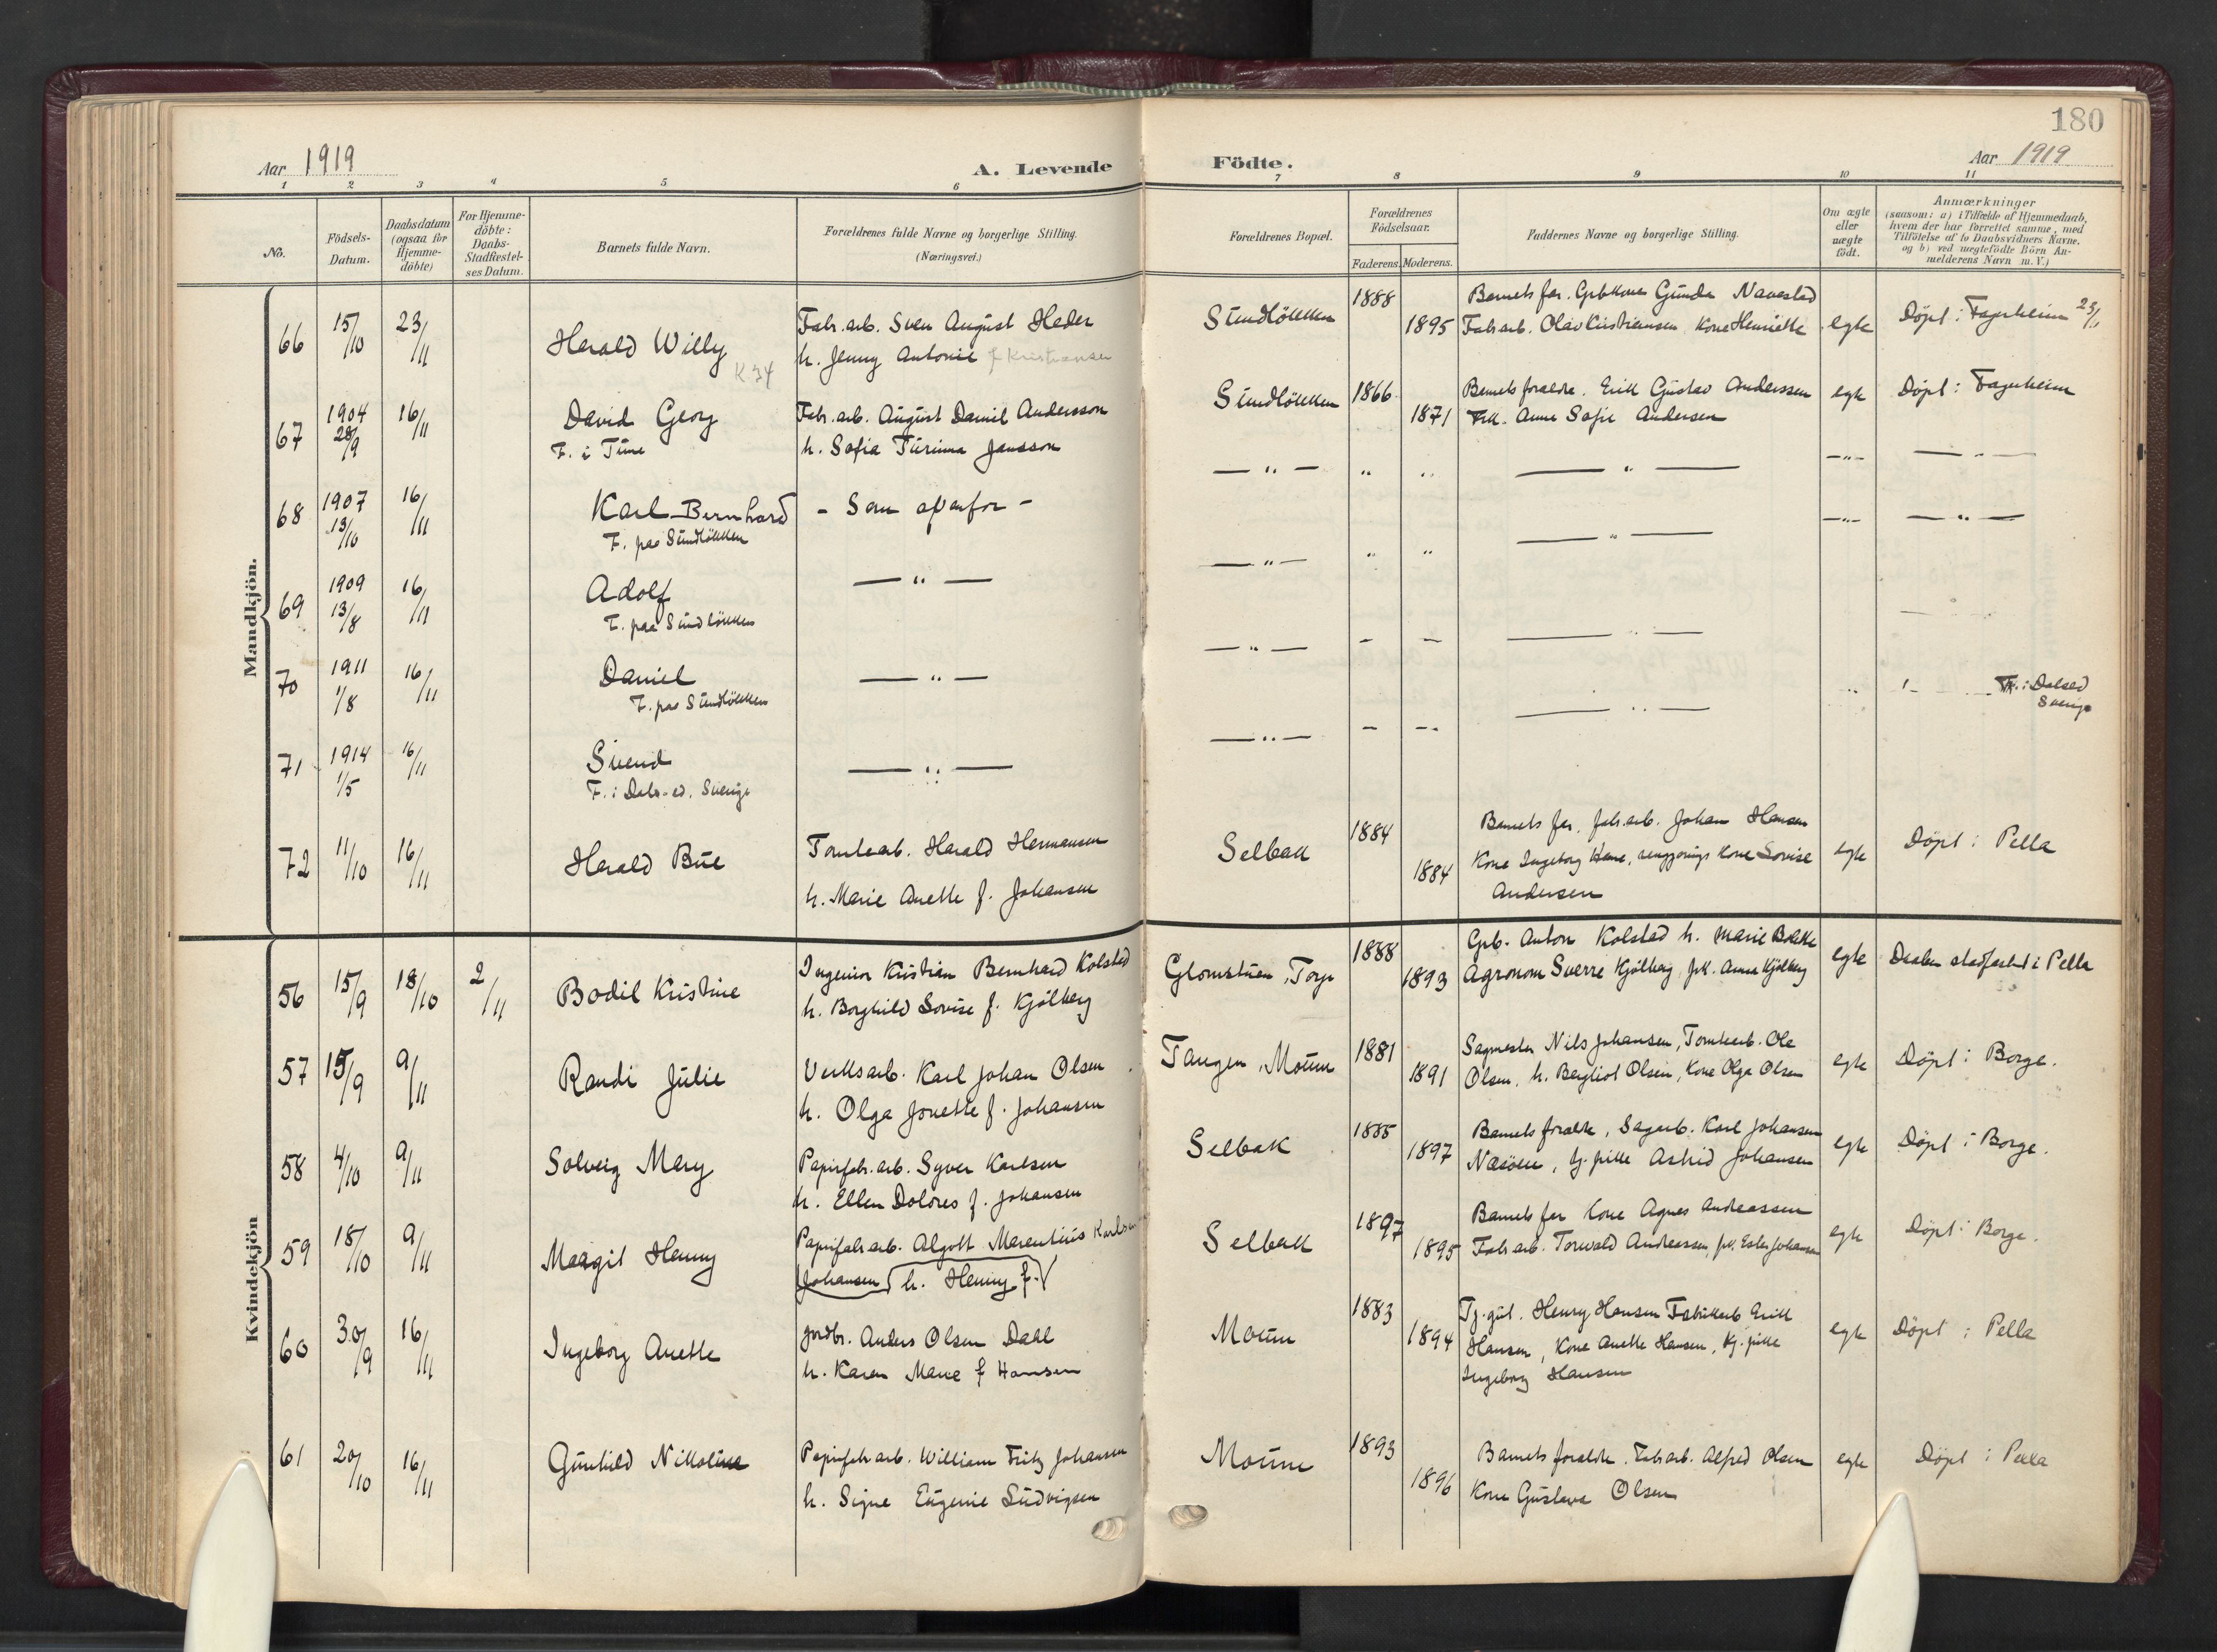 180
Aar 1919
A. Levende
Födte.
Aar 1919
1 2 3 4 5 6 7 8 9 10 11
No.
Födsels-
Datum.
Daabsdatum
(ogsaa for
Hjemme-
döbte)
For Hjemme-
döbte:
Daabs-
Stadfæstel-
ses Datum.
Barnets fulde Navn.
Forældrenes fulde Navne og borgerlige Stilling.
(Næringsvei.)
Forældrenes Bopæl.
Forældrenes
Födselsaar.
Faderens. Moderens.
Faddernes Navne og borgerlige Stilling.
Om ægte
eller
uægte
födt.
Anmærkninger
(saasom: a) i Tilfælde af Hjemmedaab,
hvem der har forrettet samme, med
Tilföielse af to Daabsvidners Navne.
og b) ved uegtefödte Börn An-
melderens Navn m. V.)
Mandkjön.
66 15/10 23/11
Harald Willy
K 34
Fabr.arb. Sven August Heder
h. Jenny Antonie f Kristiansen
Sundlökken
1888
1895
Barnets far. Grbkone Gunda Navestad
Fabrarb. Olav Kristiansen Kone Henriette
egte
Döpt i Fagerheim 23/11
67 1904 28/9 16/11
David Georg
F. i Tune
Fabr.arb. August Daniel Andersson
h. Sofia Turinna Jansson
Sundlökken
1866
1871
Barnets foraldre. Erik Gustav Anderssen
Frk. Anna Sofie Andersen
egte
Döpt i Fagerheim
68 1907 13/10 16/11
Karl Bernhard
F. paa Sundlökken
- Som ovenfor -
— " —
69 1909 13/8 16/11
Adolf
F. paa Sundlökken
— " —
70 1911 1/8 16/11
Daniel
F. paa Sundlökken
— " —
F. i Dalsed
Sverige
71 1914 1/5 16/11
Svend
F. i Dals-ed. Sverige
— " —
72 11/10 16/11
Harald Bue
Tomtearb. Harald Hermansen
h. Marie Anette f. Johansen
Selbak
1884
1884
Barnets far, fabr.arb. Johan Hansen
Kone Ingeborg Hansen, rengjörings kone Lovise
Andersen
egte
Döpt i Pella
Kvindekjön
56 15/9 18/10 2/11
Bodil Kristine
Ingeniør Kristian Bernhard Kolstad
h. Borghild Lovise f. Kjölberg
Glomstuen, Torp
1888
1893
Grb. Anton Kolstad h. Marie Bakke
Agronom Sverre Kjölberg, frk. Anna Kjölberg
egte
Daaben stadfæstet i Pella
57 15/9 9/11
Randi Julie
Verksarb. Karl Johan Olsen
h. Olga Jonette f. Johansen
Tangen, Moum
1881
1891
Sagmester Nils Johansen, Tomtearb. Ole
Olsen, h. Bergliot Olsen, Kone Olga Olsen
egte
Döpt i Borge.
58 4/10 9/11
Solveig Mary
Papirfabr.arb. Syver Karlsen
h. Ellen Dolores f. Johansen
Selbak
1885
1897
Barnets foraldre, Sagarb. Karl Johansen
Næsöen, tj. pike Astrid Johansen
egte
Döpt i Borge.
59 18/10 9/11
Margit Henny
Papirfabr.arb. Algott Marentius Karlsen
Johansen h. Henny f.
Selbak
1897
1895
Barnets far Kone Agnes Andreassen
Fabrarb. Torvald Andreassen, frk. Ester Johansen
egte
Döpt i Borge.
60 30/9 16/11
Ingeborg Anette
Jordbr. Anders Olsen Dahl
h. Karen Marie f Hansen
Moum
1883
1894
Tj.gut. Henry Hansen Fabrikarb Erik
Hansen, Kone Anette Hansen, tj. pike
Ingeborg Hansen
egte
Döpt i Pella
61 20/10 16/11
Gunhild Nikoline
Papirfabr arb. William Fritz Johansen
h. Signe Eugenie Ludvigsen
Moum
1893
1896
Barnets foraldre. Fabrarb. Alfred Olsen
Kone Gustava Olsen
egte
Döpt i Pella